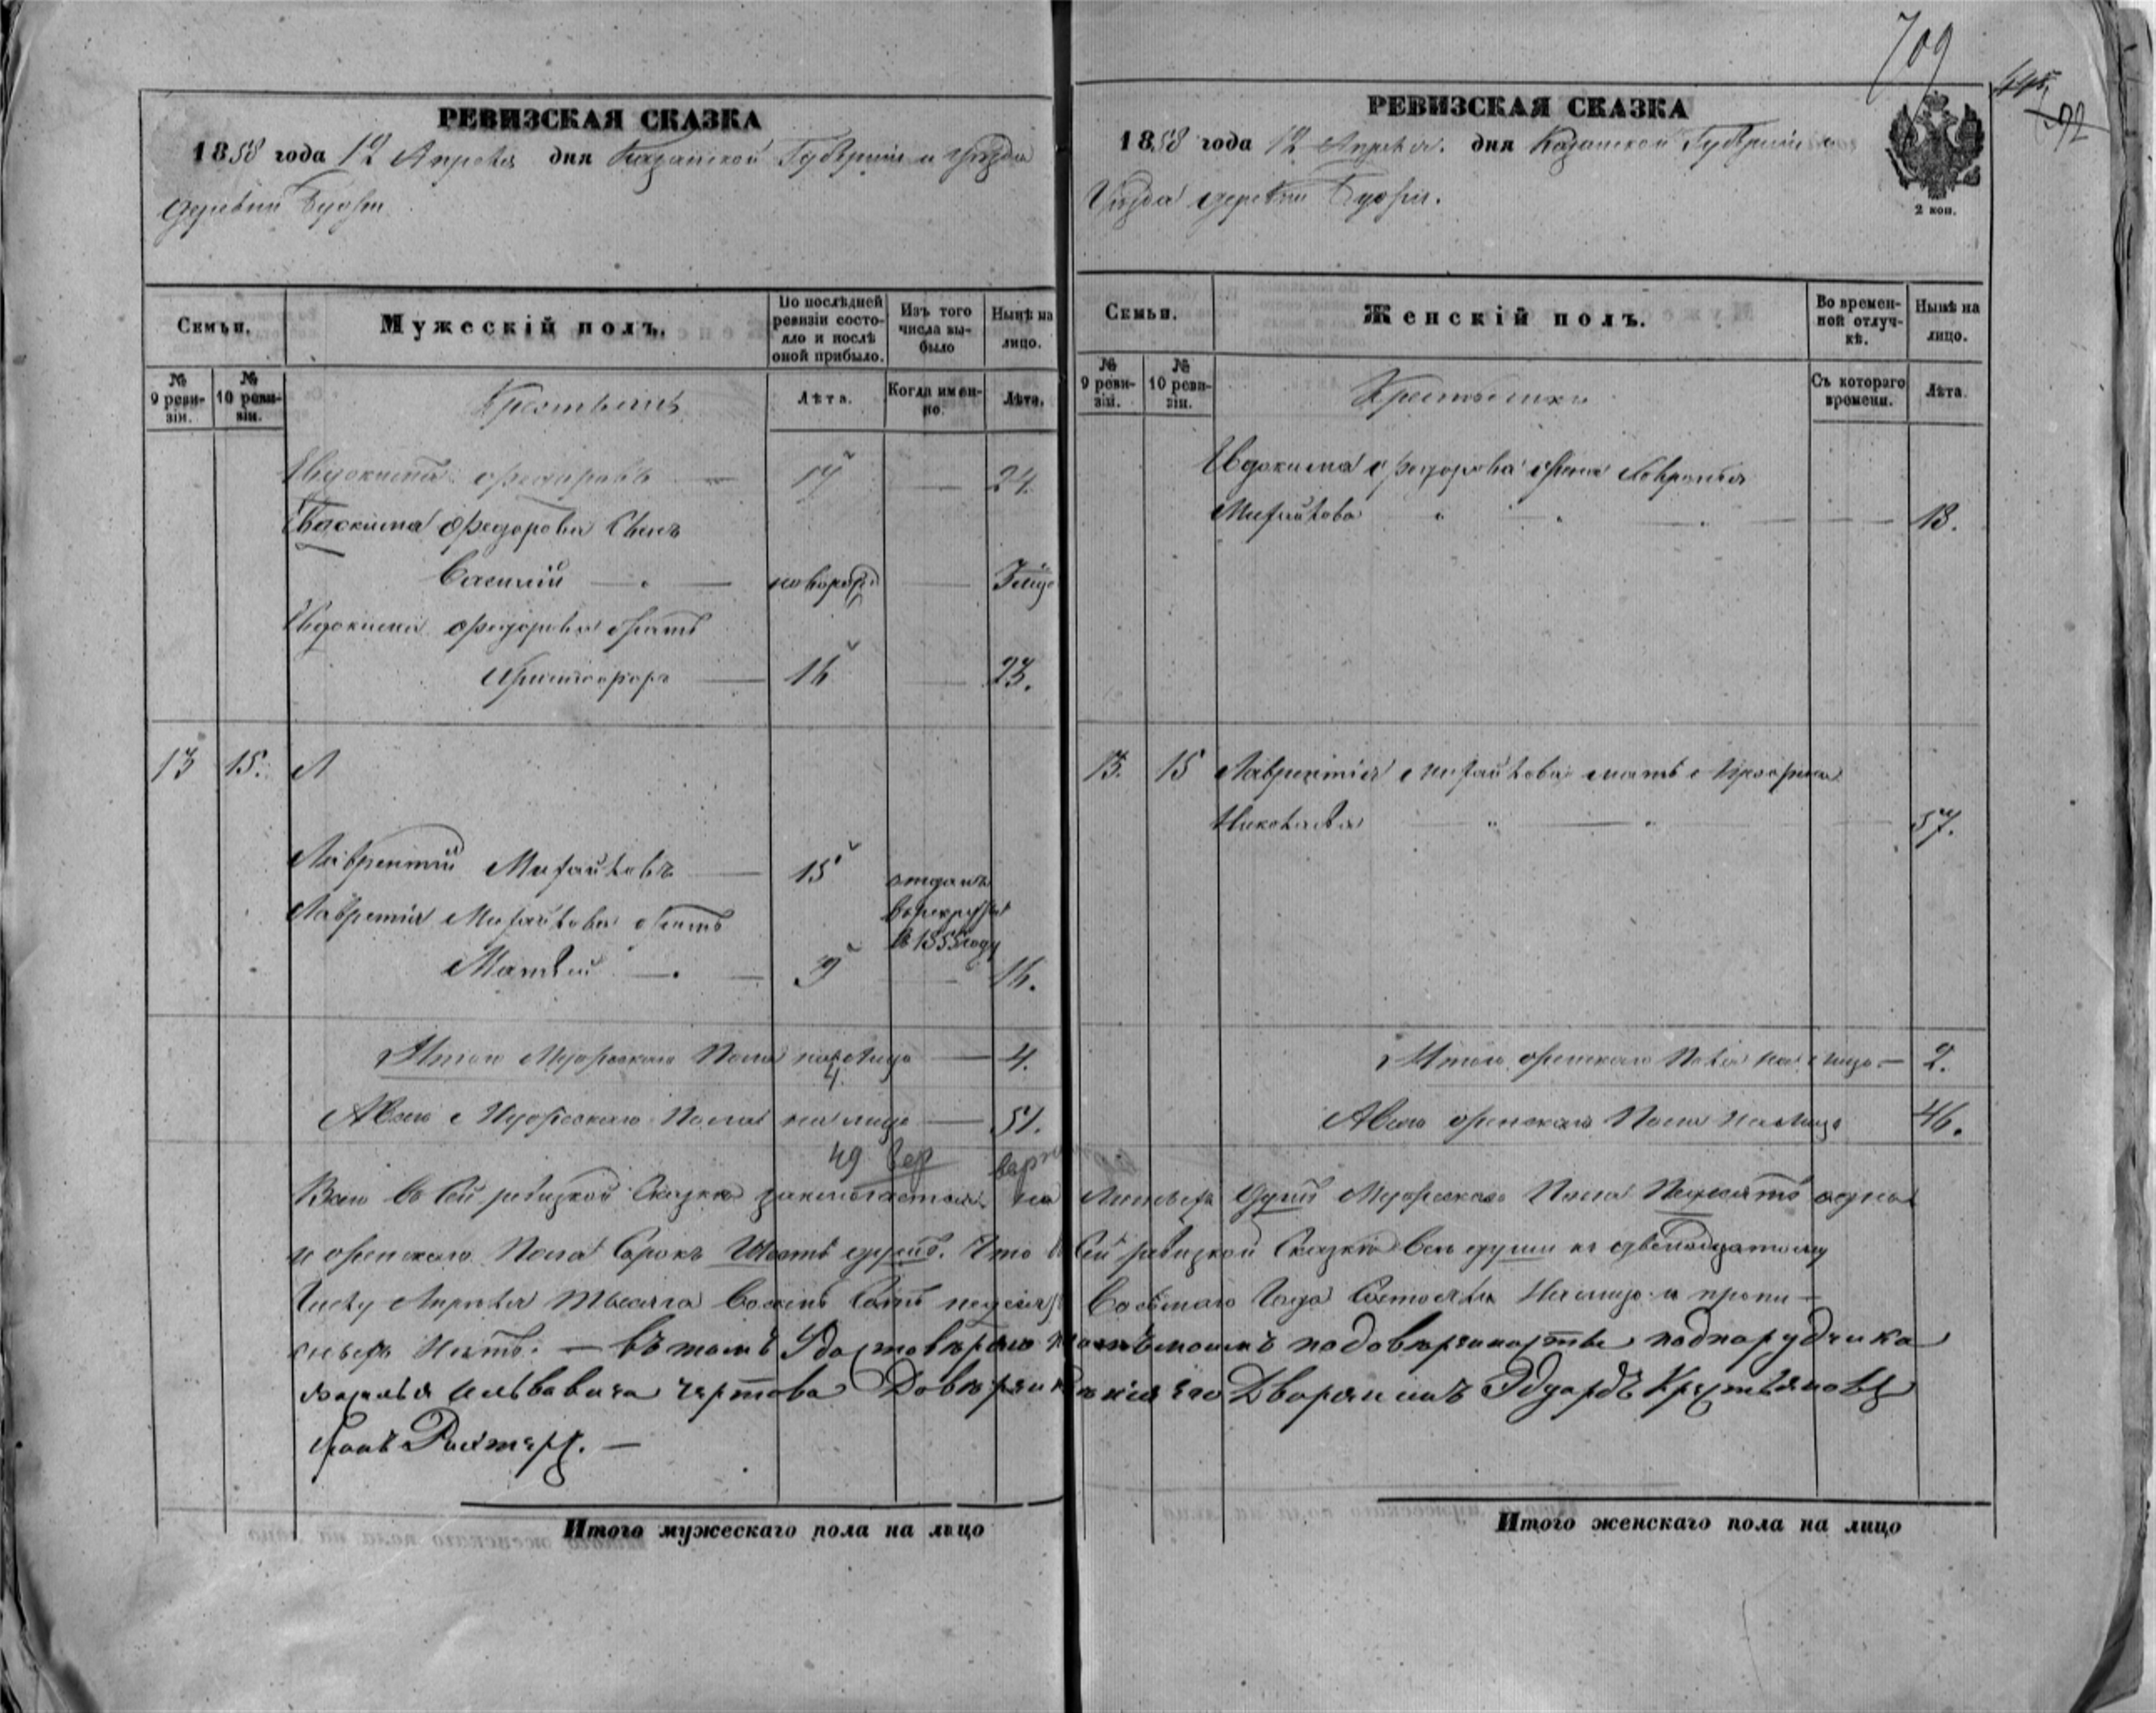 РЕВИЗСКАЯ СКАЗКА
1858 года 12 Апреля дня Казанской Губернии и Уезда
деревни
Семьи.
Мужескій полъ.
По послѣдней ревизіи состояло и послѣ оной прибыло.
Изъ того числа выбыло
Нынѣ на лицо.
№ 9 ревизіи.
№ 10 ревизіи.
Крестьяне
Лѣта.
Когда именно.
Лѣта.
Евдокимъ Федоровъ — 17 — 24.
Евдокима Федорова Сынъ
Василий — новорож — 3 мѣс
Евдокима Федорова братъ
Христофоръ — 16 — 23.
13 15. Л
Лаврентий Михайловъ — 15 отданъ
в рекруты
в 1855 году
Лаврентия Михайлова братъ
Матвей — 9 — 16.
Итого Мужеского Пола на лицо — 4.
4.
А всего Мужеского Пола на лицо — 51.
49 вер
РЕВИЗСКАЯ СКАЗКА
1858 года 12 Апреля. дня Казанской Губернии и
Уезда деревни
709
92
2 коп.
Семьи.
Женскій полъ.
Во временной отлучкѣ.
Нынѣ на лицо.
№ 9 ревизіи.
№ 10 ревизіи.
Крестьянки
Съ котораго времени.
Лѣта.
Евдокима Федорова жена Февронья
Михайлова — 18.
13. 15 Лаврентия Михайлова мать
Николаева — 57.
Итого женского Пола на лицо — 2.
А всего женского Пола на лицо 46.
Всего в сей ревизкой Сказке заключается на Лицо Душъ Мужеского Пола Пятьдесятъ одна
и женского Пола Сорокъ Шесть душъ. Что в Сей ревизкой Сказке все души къ двенадцатому
Числу Апреля Тысяча Восемь Сотъ пятьдесятъ Восьмаго Года Состояли На лицо и пропи-
сныхъ Нетъ. — въ томъ Удостоверяю подпоручика
Львовича Чертова Дворянинъ Эдуардъ
Итого мужескаго пола на лицо
Итого женскаго пола на лицо